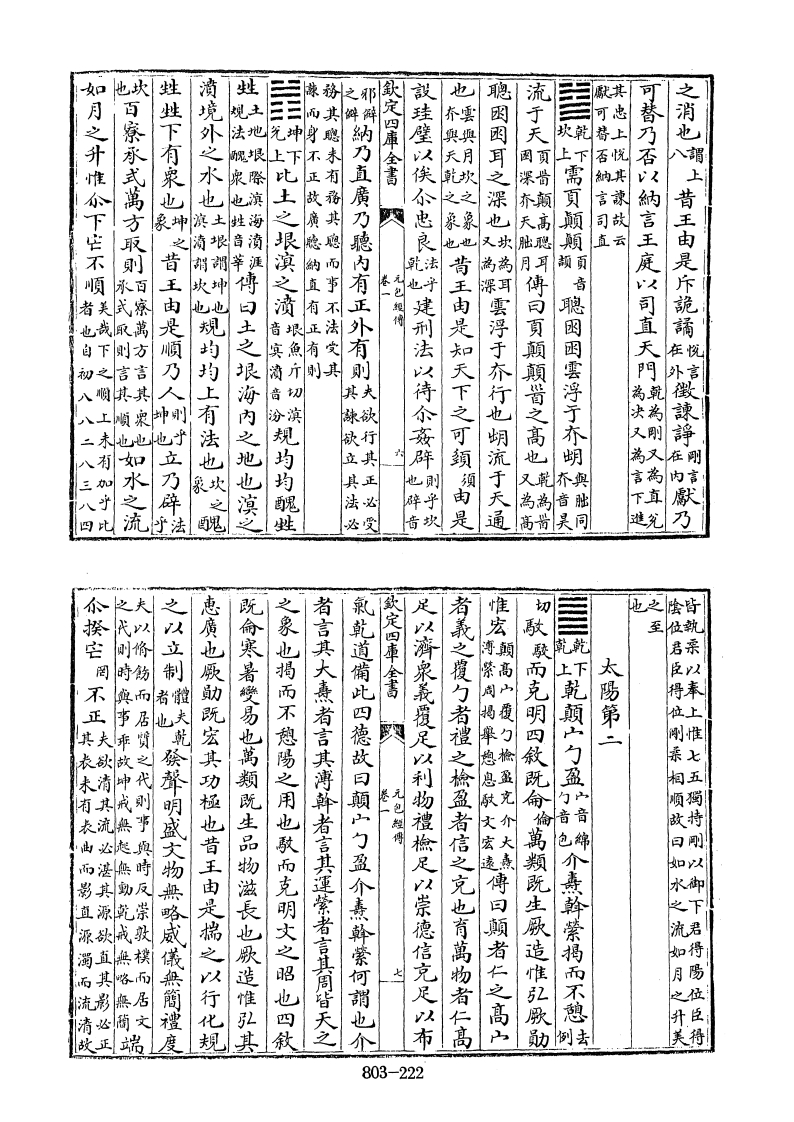 之消也謂上八昔王由是斥詭譎悅言在外徵諫諍剛言在內獻乃
可替乃否以納言王庭以司直天門乾為剛又為直兌為決又為言下進
其忠上悅其諫故云獻可替否納言司直
䷄乾下坎上需頁顛顛頁音頡聰囦囦雲浮于夰朏與朏同夰音昊
流于天頁𩠐顛高聰耳囦深夰天朏月傳曰頁顛顛𩠐之高也乾為𩠐又為高
聰囦囦耳之深也坎為耳又為深雲浮于夰行也朏流于天通
也雲與月坎之象也夰與天乾之象也昔王由是知天下之可䇓須由是
設珪璧以俟尒忠良法乎乾也建刑法以待尒姦辟則乎坎也辟音
欽定四庫全書 元包經傳卷一 六
邪僻之僻納乃直廣乃聽內有正外有則夫欲行其正必受其諫欲立其法必
務其聰未有務其聰而事不法受其諫而身不正故廣聽納直有正有則
䷇坤下兌上比土之垠㵋之濆垠魚斤切㵋音㝠濆音汾規均均醜甡
甡土地垠際㵋海濆涯規法醜衆也甡音莘傳曰土之垠海內之地也㵋之
濆境外之水也土垠謂坤也㵋濆謂坎也規均均上有法也坎之象醜
甡甡下有衆也坤之象昔王由是順乃人則乎坤也立乃辟法乎
坎也百寮承式萬方取則百寮萬方言其衆也承式取則言其順也如水之流
如月之升惟尒下㐌不順美哉下之順上未有加乎比者也自初八八二八三八四
皆執柔以奉上惟七五獨持剛以御下君得陽位臣得陰位君臣得位剛柔相順故曰如水之流如月之升美
之至也
太陽第二
䷀乾下乾上乾顛宀勹盈宀音綿勹音包介燾斡縈揭而不憩去例
切馭馭而克明四敘既侖倫萬類既生厥造惟弘厥勛
惟宏顛高宀覆勹檢盈充介大燾溥縈周揭舉憩息馭文宏遠傳曰顛者仁之高宀
者義之覆勹者禮之檢盈者信之充也育萬物者仁高
足以濟衆義覆足以利物禮檢足以崇德信充足以布
欽定四庫全書 元包經傳卷一 七
氣乾道備此四德故曰顛宀勹盈介燾斡縈何謂也介
者言其大燾者言其溥斡者言其運縈者言其周皆天之
之象也揭而不憩陽之用也馭而克明文之昭也四敘
既侖寒暑變易也萬類既生品物滋長也厥造惟弘其
恵廣也厥勛既宏其功極也昔王由是揣之以行化規
之以立制體夫乾者也發聲明盛文物無略威儀無簡禮度
夫以脩飭而居質之代則事與時反崇敦樸而居文之代則時與事乖故坤戒無起無動乾戒無略無簡端
尒揆㐌罔不正夫欲清其流必湛其源欲直其影必正其表未有表曲而影直源濁而流清故
803-222